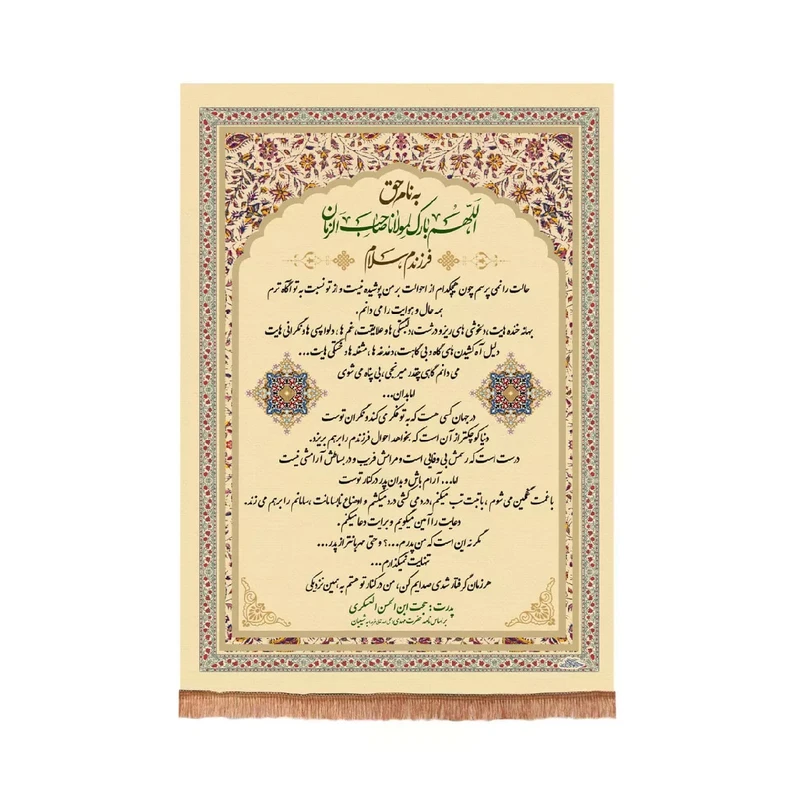 به نام حق
اللّهم بارک لمولانا صاحب الزمان
فرزندم سلام
حالت را نمی پرسم چون هیچکدام از احوالت بر من پوشیده نیست و از تو نسبت به تو آگاه ترم
همه حال و هوایت را می دانم.
بهانه خنده هایت، دلخوشی های ریز و درشت، دلبستگی ها و علایقت، غم ها، دلواپسی ها و نگرانی هایت
دلیل آه کشیدن های گاه و بی گاهت، دغدغه ها، مشغله ها و خستگی هایت...
می دانم گاهی چقدر میرنجی، بی پناه می شوی
اما بدان...
در جهان کسی هست که به تو فکر می کند و نگران توست
دنیا کوچکتر از آن است که بخواهد احوال فرزندم را برهم بریزد.
درست است که رسمش بی وفایی است و مرامش فریب و در بساطش آرامشی نیست
اما... آرام باش و بدان پدر در کنار توست
با غمت غمگین می شوم، با تبت تب میکنم، درد می کشی درد میکشم و اوضاع نابسامانت، سامانم را برهم می زند.
دعایت را آمین میگویم و برایت دعا میکنم.
مگر نه این است که من پدرم...؟ و حتی مهربانتر از پدر...
تنهایت نمیگذارم...
هر زمان گرفتار شدی صدایم کن، من در کنار تو هستم به همین نزدیکی
پدرت: حجت ابن الحسن العسکری
بر اساس نامه حضرت مهدی به شیعیان